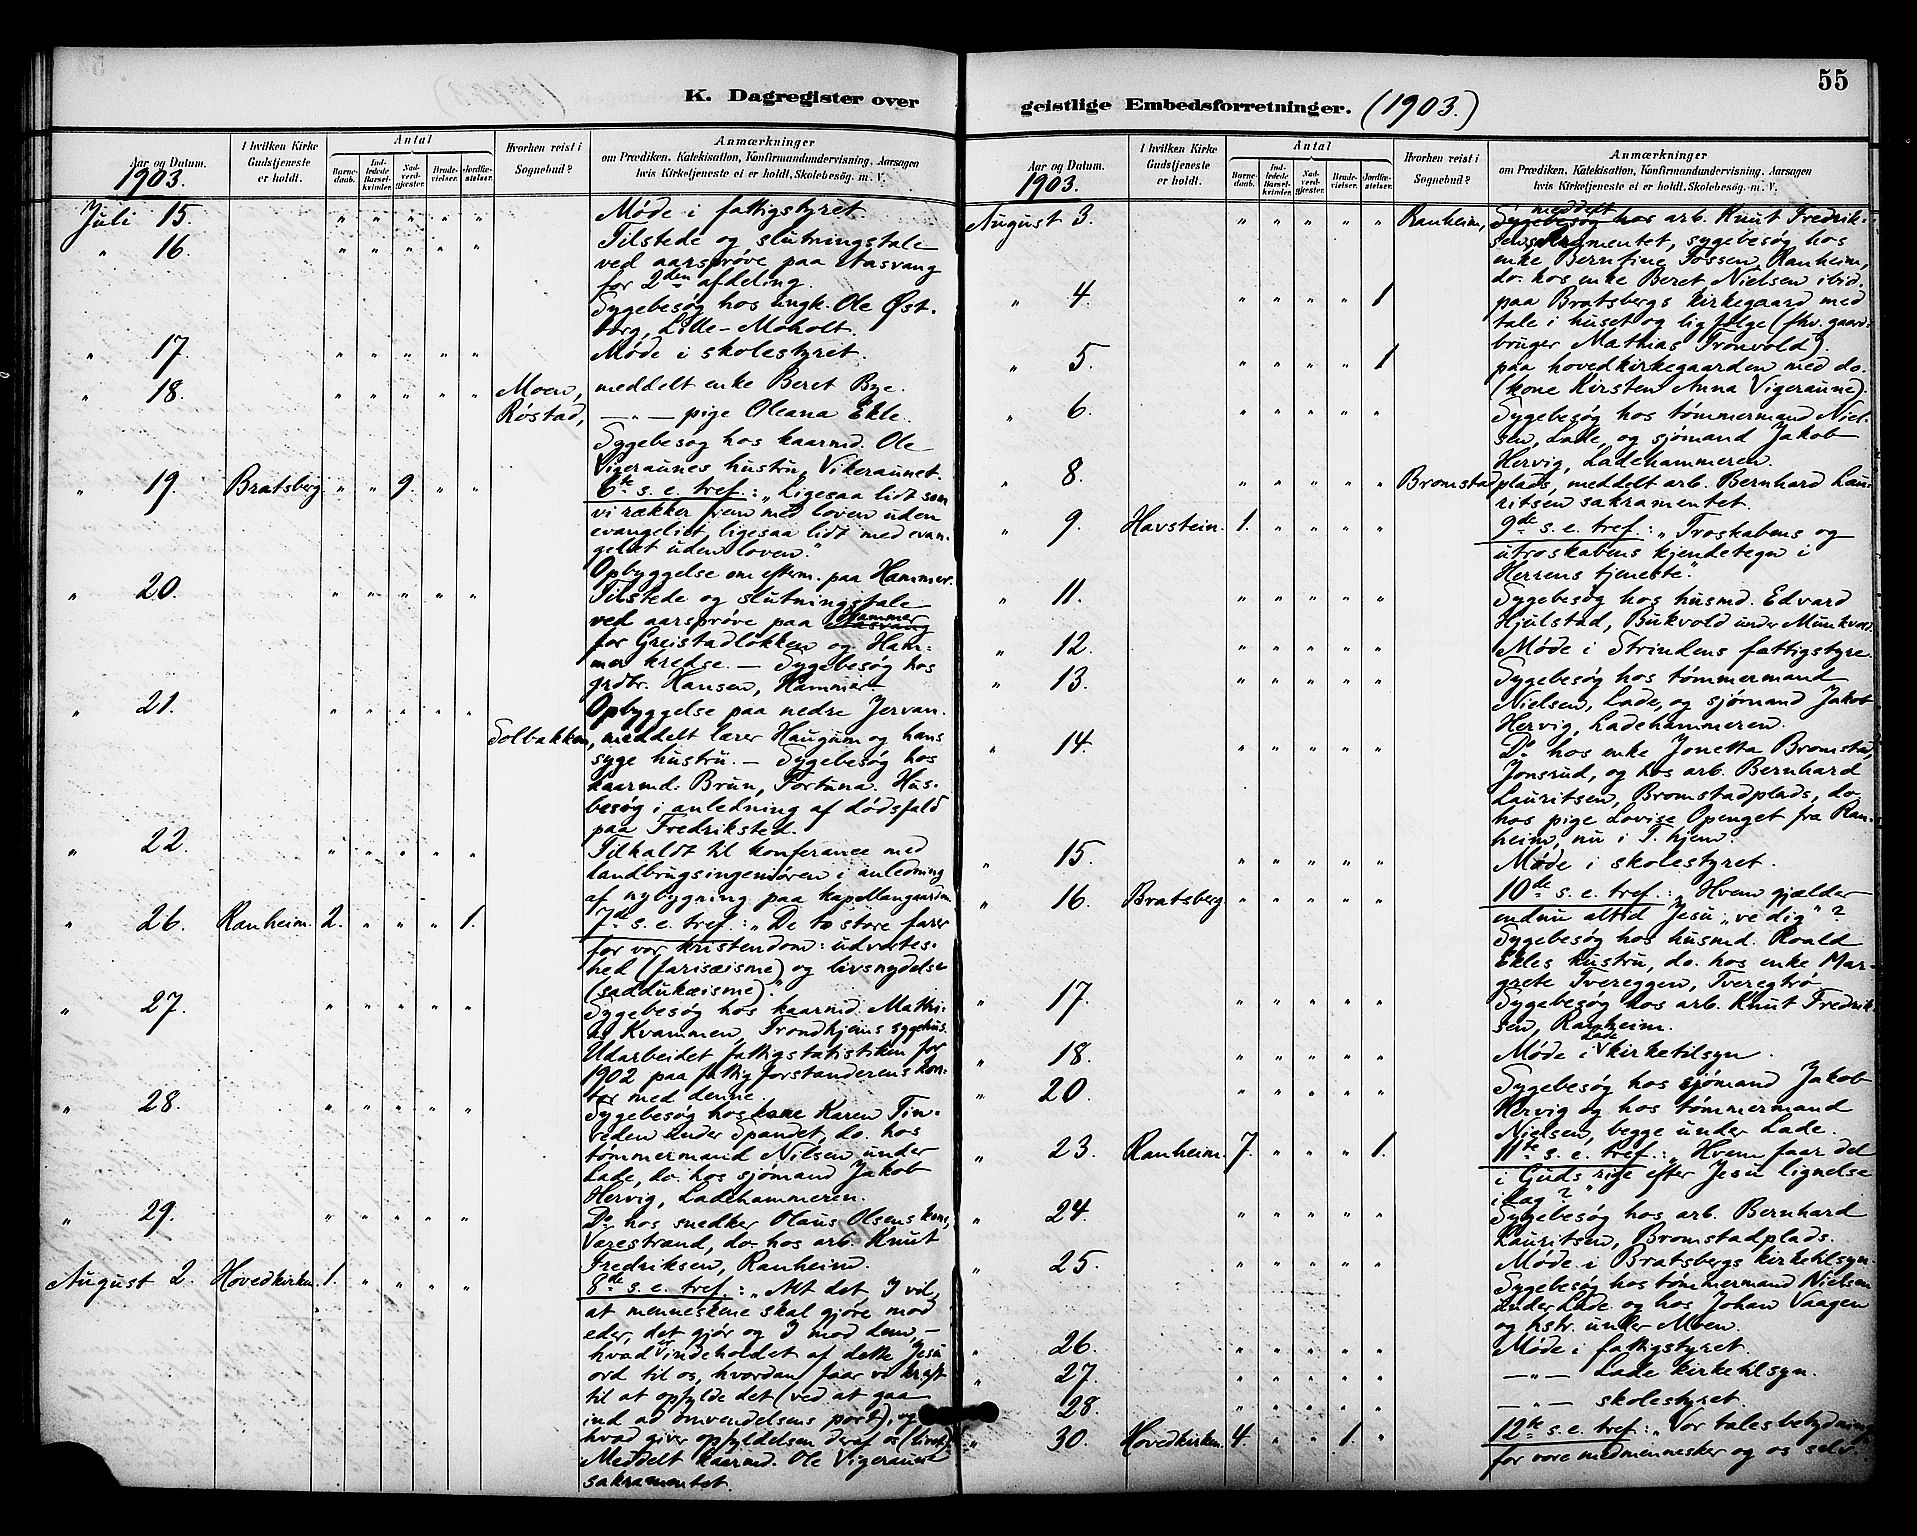 K. Dagregister over
Aar og Datum.
1903.
I hvilken Kirke
Gudstjeneste
er holdt.
Antal
Barne-
daab.
Ind-
ledede
Barsel-
kvinder.
Nad-
verd-
gjester.
Brude-
vielser.
Jordfæ-
stelser.
Hvorhen reist i
Sognebud?
Anmærkninger
om Prædiken, Katekisation, Konfirmandundervisning, Aarsagen
hvis Kirketjeneste ei er holdt, Skolebesøg. m. V.
Juli 15 " " " " " Møde i fattigstyret.
" 16. " " " " " Tilstede og slutningstale
ved aarsprøve paa Aasvang
for 2den afdeling.
Sygebesøg hos ungk. Ole Øst-
borg, Lille-Moholt.
" 17. " " " " " Møde i skolestyret.
" 18. " " " " " Moen, meddelt enke Beret Bye.
Røstad, — " — pige Oleana Ekle.
Sygebesøg hos kaarmd. Ole
Vigeraunes hustru, Vikeraunet.
" 19. Bratsberg " " 9. " " 6te s. e. tref.: „Ligesaa lidt som
vi rækker frem med loven uden
evangeliet, ligesaa lidt med evan-
geliet uden loven."
Opbyggelse om efterm. paa Hammer.
" 20. " " " " " Tilstede og slutningstale
ved aarsprøve paa Hammer Aasvang
for Greistadløkken og Ham-
mer kredse. — Sygebesøg hos
grdbr. Hansen, Hammer.
" 21. " " " " " Opbyggelse paa nedre Jervan.
Solbakken, meddelt lærer Haugum og hans
syge hustru. — Sygebesøg hos
kaarmd. Brun, Fortuna. Hus-
besøg i anledning af dødsfald
paa Fredriksted.
" 22. " " " " " Tilkaldt til konferance med
landbrugsingeniøren i anledning
af nybygning paa kapellangaarden.
" 26. Ranheim. 2. " " " 1. 7de s. e. tref.: „De to store farer
for vor kristendom: udvortes-
hed (farisæisme) og livsnydelse
(saddukæisme)."
" 27. " " " " " Sygebesøg hos kaarmd. Mathi-
as Kvammen, Trondhjems sygehus.
Udarbeidet fattigstatistiken for
1902 paa fattigforstanderens kon-
tor med denne.
" 28. " " " " " Sygebesøg hos kone Karen Tin-
veden under Spandet, do. hos
tømmermand Nilsen under
Lade, do. hos sjømand Jakob
Hervig, Ladehammeren.
" 29. " " " " " Do. hos snedker Olaus Olsens kone,
Værestrand, do. hos arb. Knut
Fredriksen, Ranheim.
August 2. Hovedkirken. 1. " " " " 8de s. e. tref.: „Alt det, I vil,
at menneskene skal gjøre mod
eder, det gjør og I mod dem, —
hvad er indeholdet af dette Jesu
ord til os, hvordan faar vi kraft
til at opfylde det (ved at gaa
ind ad omvendelsens port), og
hvad giver opfyldelsen deraf os (livet).
Meddelt kaarmd. Ole Vigeraunet
sakramentet.
55
geistlige Embedsforretninger. (1903.)
Aar og Datum.
1903.
I hvilken Kirke
Gudstjeneste
er holdt.
Antal
Barne-
daab.
Ind-
ledede
Barsel-
kvinder.
Nad-
verd-
gjester.
Brude-
vielser.
Jordfæ-
stelser.
Hvorhen reist i
Sognebud?
Anmærkninger
om Prædiken, Katekisation, Konfirmandundervisning, Aarsagen
hvis Kirketjeneste ei er holdt, Skolebesøg. m. V.
August 3. " " " " " Ranheim, Sygebesøg hos meddelt arb. Knut Fredrik-
sen sakramentet, sygebesøg hos
enke Bernfine Fossen, Ranheim,
do. hos enke Beret Nielsen ibid.
" 4. " " " " 1 paa Bratsbergs kirkegaard med
tale i huset og ligfølge (fhv. gaard-
bruger Mathias Tronvold).
" 5. " " " " 1 paa hovedkirkegaarden med do.
(kone Kirsten Anna Vigeraune).
" 6. " " " " " Sygebesøg hos tømmermand Niel-
sen, Lade, og sjømand Jakob
Hervig, Ladehammeren.
" 8. " " " " " Bromstadplads, meddelt arb. Bernhard Lau-
ritsen sakramentet.
" 9. Havstein. 1. " " " " 9de s. e. tref.: „Troskabens og
utroskabens kjendetegn i
Herrens tjeneste".
" 11. " " " " " Sygebesøg hos husmd. Edvard
Hjulstad, Bukvold under Munkvold.
" 12. " " " " " Møde i Strindens fattigstyre.
" 13. " " " " " Sygebesøg hos tømmermand
Nielsen, Lade, og sjømand Jakob
Hervig, Ladehammeren.
" 14. " " " " " Do. hos enke Jonetta Bromstad,
Jonsrud, og hos arb. Bernhard
Lauritsen, Bromstadplads, do.
hos pige Lovise Openget fra Ran-
heim, nu i T.hjem.
" 15. " " " " " Møde i skolestyret.
" 16. Bratsberg " " " " " 10de s. e. tref.: „Hvem gjælder
endnu altid Jesu „ve dig"?
Sygebesøg hos husmd. Roald
Ekles hustru, do. hos enke Mar-
grete Tvereggen, Tveregtrø.
" 17. " " " " " Sygebesøg hos arb. Knut Fredrik-
sen, Ranheim.
" 18. " " " " " Møde i Lade kirketilsyn.
" 20. " " " " " Sygebesøg hos sjømand Jakob
Hervig og hos tømmermand
Nielsen, begge under Lade.
" 23. Ranheim. 7. " " " 1. 11te s. e. tref.: „Hvem faar del
i Guds rige efter Jesu lignelse
i dag?"
" 24. " " " " " Sygebesøg hos arb. Bernhard
Lauritsen, Bromstadplads.
" 25. " " " " " Møde i Bratsbergs kirketilsyn.
Sygebesøg hos tømmermand Nielsen
under Lade og hos Johan Vaagen
og hstr. under Moen.
" 26. " " " " " Møde i fattigstyret.
" 27. " " " " " — " — Lade kirketilsyn.
" 28. " " " " " — " — skolestyret.
" 30. Hovedkirken. 4. " " 1. " 12te s. e. tref.: „Vor tales betydning
for vore medmennesker og os selv."